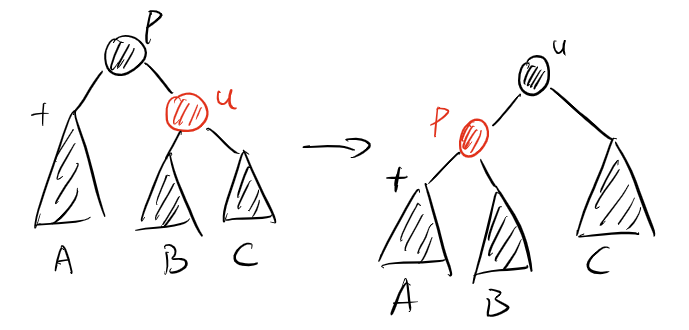 P
u
+
A
B
C
u
P
+
A
B
C